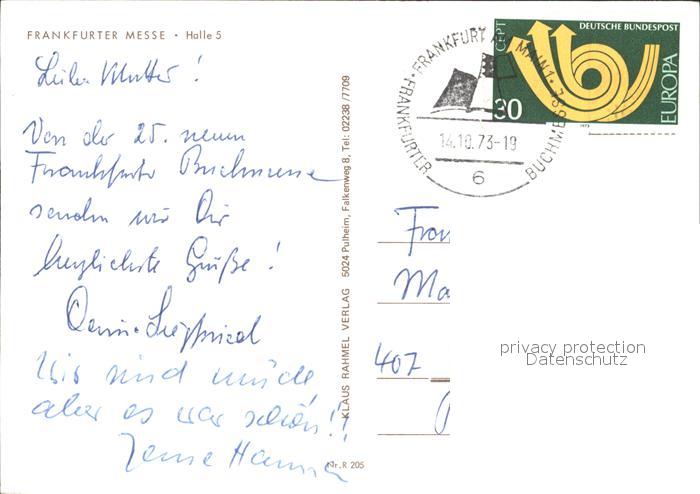 FRANKFURTER MESSE • Halle 5
Liebe Mutter!
Von der 25. neuen
Frankfurter Buchmesse
senden wir Dir
herzlichste Grüße!
Siegfried
Wir sind müde
aber es war schön!!
KLAUS RAHMEL VERLAG 5024 Pulheim, Falkenweg 8, Tel: 02238/7709
Nr. R 205
FRANKFURT AM MAIN 1 · 73
FRANKFURTER BUCHMESSE
14.10.73-19
6
CEPT
DEUTSCHE BUNDESPOST
EUROPA
30
1973
Frau
Ma
407
privacy protection
Datenschutz